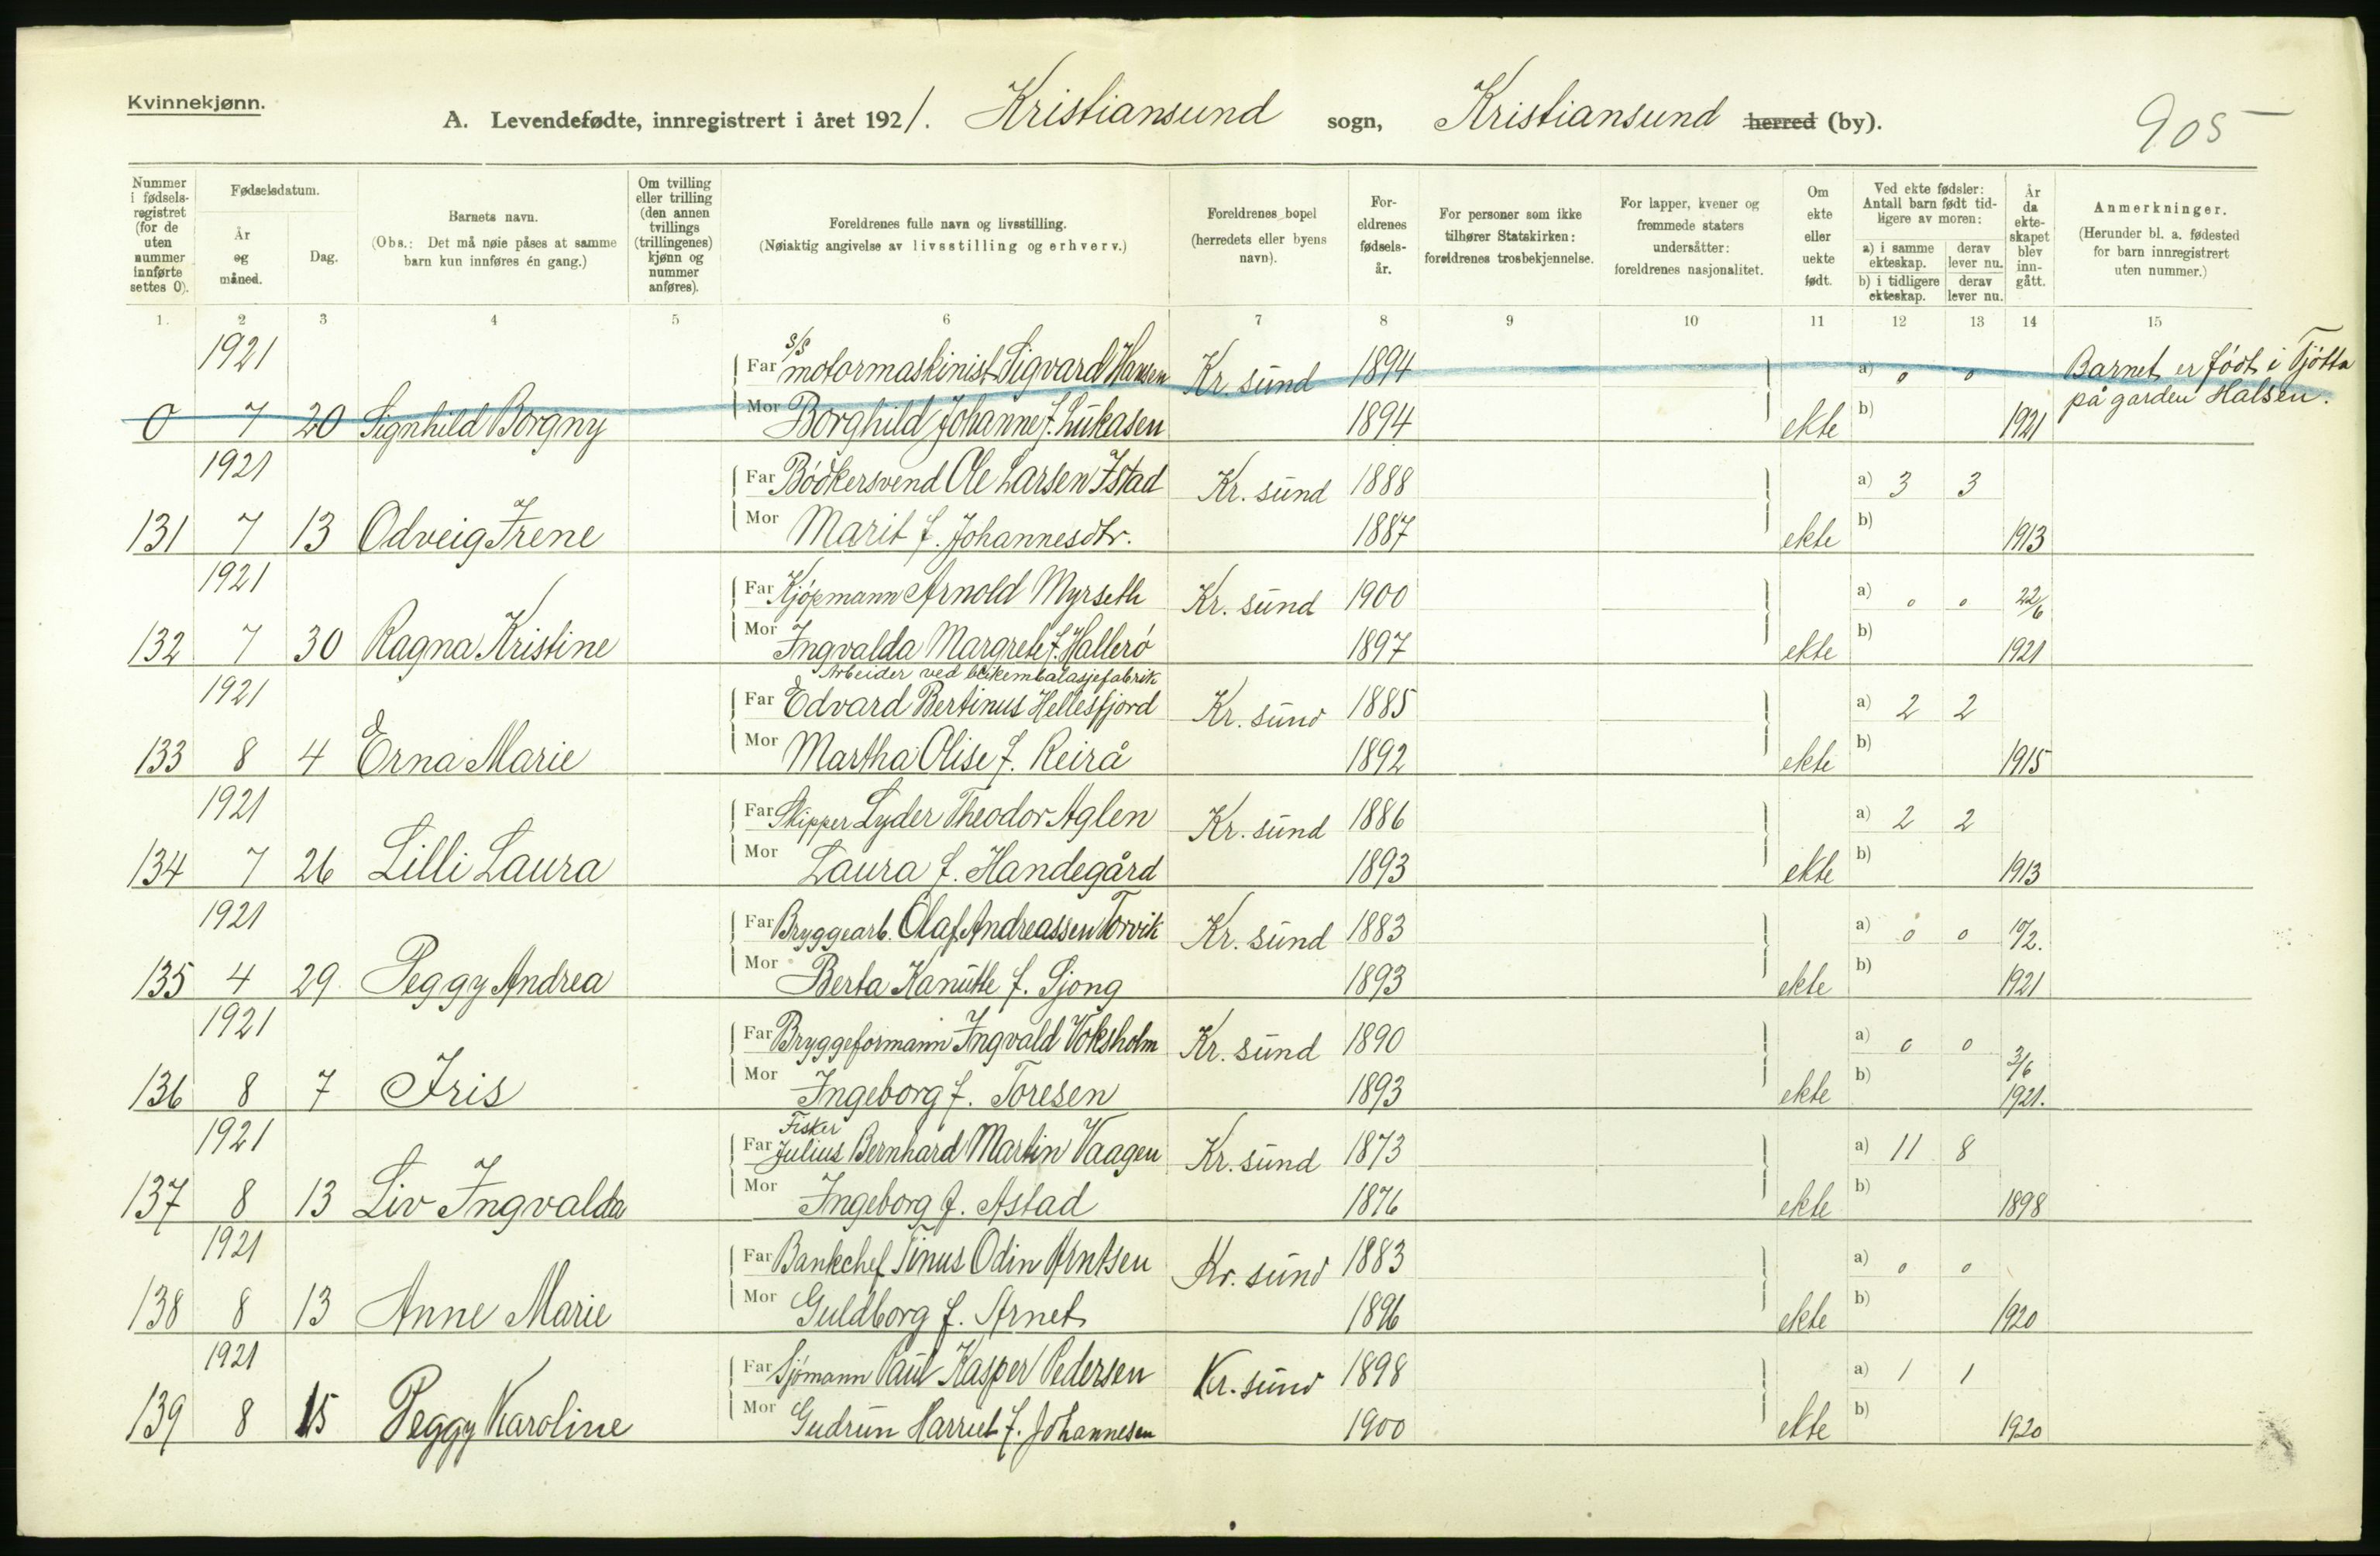 Kvinnekjønn.
A. Levendefødte, innregistrert i året 1921. Kristiansund sogn, Kristiansund herred (by).
905
Nummer i fødsels-registret (for de uten nummer innførte settes 0).
Fødselsdatum.
År og måned.
Dag.
Barnets navn.
(Obs.: Det må nøie påses at samme barn kun innføres én gang.)
Om tvilling eller trilling (den annen tvillings (trillingenes) kjønn og nummer anføres).
Foreldrenes fulle navn og livsstilling.
(Nøiaktig angivelse av livsstilling og erhverv.)
Foreldrenes bopel (herredets eller byens navn).
For-eldrenes fødsels-år.
For personer som ikke tilhører Statskirken: foreldrenes trosbekjennelse.
For lapper, kvener og fremmede staters undersåtter: foreldrenes nasjonalitet.
Om ekte eller uekte født.
Ved ekte fødsler: Antall barn født tid-ligere av moren:
a) i samme ekteskap. derav lever nu.
b) i tidligere ekteskap. derav lever nu.
År da ekte-skapet blev inn-gått.
Anmerkninger.
(Herunder bl. a. fødested for barn innregistrert uten nummer.)
1. 2 3 4 5 6 7 8 9 10 11 12 13 14 15
1921 Far s/s motormaskinist Sigvard Hansen Kr. sund 1894 a) 0 0 Barnet er født i Tjötta
0 7 20 Signhild Borgny Mor Borghild Johanne f. Lukasen 1894 ekte b) 1921 på garden Halsen.
1921 Far Bödkersvend Ole Larsen Istad Kr. sund 1888 a) 3 3
131 7 13 Odveig Irene Mor Marit f. Johannesdtr. 1887 ekte b) 1913
1921 Far Kjöpmann Arnold Myrseth Kr. sund 1900 a) 0 0 22/6
132 7 30 Ragna Kristine Mor Ingvalda Margrete f. Hallerö 1897 ekte b) 1921
Arbeider ved blikemballasjefabrik
1921 Far Edvard Bertinus Hellesfjord Kr. sund 1885 a) 2 2
133 8 4 Erna Marie Mor Martha Olise f. Reirå 1892 ekte b) 1915
1921 Far Skipper Lyder Theodor Aglen Kr. sund 1886 a) 2 2
134 7 26 Lilli Laura Mor Laura f. Handegård 1893 ekte b) 1913
1921 Far Bryggearb. Olaf Andreassen Torvik Kr. sund 1883 a) 0 0 19/2.
135 4 29 Peggy Andrea Mor Berta Kanutte f. Sjong 1893 ekte b) 1921
1921 Far Bryggeformann Ingvald Voksholm Kr. sund 1890 a) 0 0 3/6
136 8 7 Iris Mor Ingeborg f. Toresen 1893 ekte b) 1921.
Fisker
1921 Far Julius Bernhard Martin Vaagen Kr. sund 1873 a) 11 8
137 8 13 Liv Ingvalda Mor Ingeborg f. Astad 1876 ekte b) 1898
1921 Far Bankchef Tinus Odin Arntsen Kr. sund 1883 a) 0 0
138 8 13 Anne Marie Mor Guldborg f. Arnet 1896 ekte b) 1920
1921 Far Sjömann Paul Kasper Pedersen Kr. sund 1898 a) 1 1
139 8 15 Peggy Karoline Mor Gudrun Harriet f. Johannesen 1900 ekte b) 1920